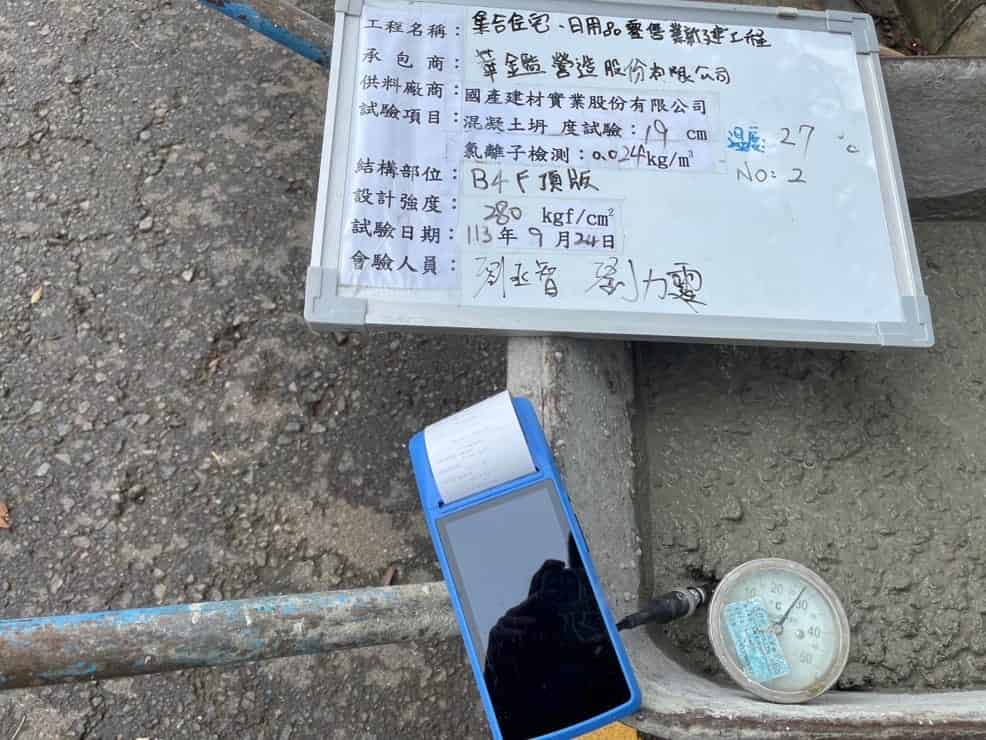 工程名稱：集合住宅、日用品零售業新建工程
承包商：華鑑營造股份有限公司
供料廠商：國產建材實業股份有限公司
試驗項目：混凝土坍 度試驗：19 cm
氯離子檢測：0.024kg/m³
溫度：27 ℃
NO：2
結構部位：B4F頂版
設計強度：280 kgf/cm²
試驗日期：113年9月24日
會驗人員：劉 智 劉力霆
10 20 30 40 50
℃